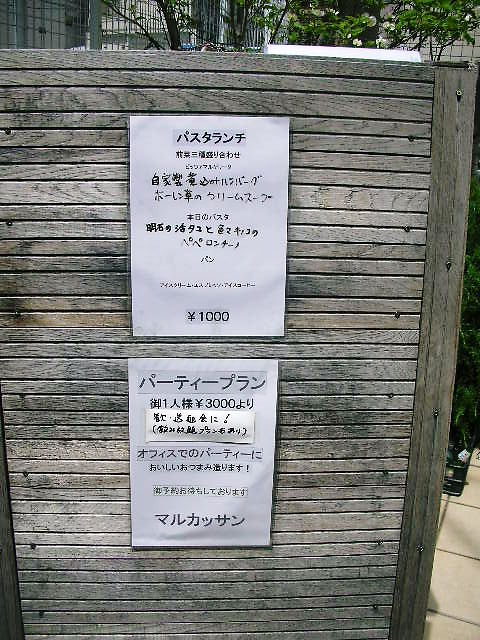 パスタランチ
前菜三種盛り合わせ
ピッツァマルゲリータ
自家製煮込みハンバーグ
ホーレン草のクリームスープ
本日のパスタ
明石の活タコと色々キノコの
ペペロンチーノ
パン
アイスクリーム・エスプレッソ・アイスコーヒー
￥1000
パーティープラン
御1人様￥3000より
歓・送迎会に！
(飲み放題プラン有あり)
オフィスでのパーティーに
おいしいおつまみ造ります！
御予約お待ちしております
マルカッサン